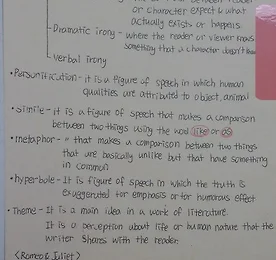 or character expect & what
actually exists or happens.
-Dramatic irony - where the reader or viewer knows
something that a character doesn't know
- Verbal Irony
•Personification - it is a figure of speech in which human
qualities are attributed to object, animal
•Simile - it is a figure of speech that makes a comparison
between two things using the word like or as
•metaphor - " that makes a comparison between two things
that are basically unlike but that have something
in common
•hyperbole - It is figure of speech in which the truth is
exaggerated for emphasis or for humorous effect
•Theme - It is a main idea in a work of literature.
It is a perception about life or human nature that the
writer shares with the reader.
<Romeo & Juliet>